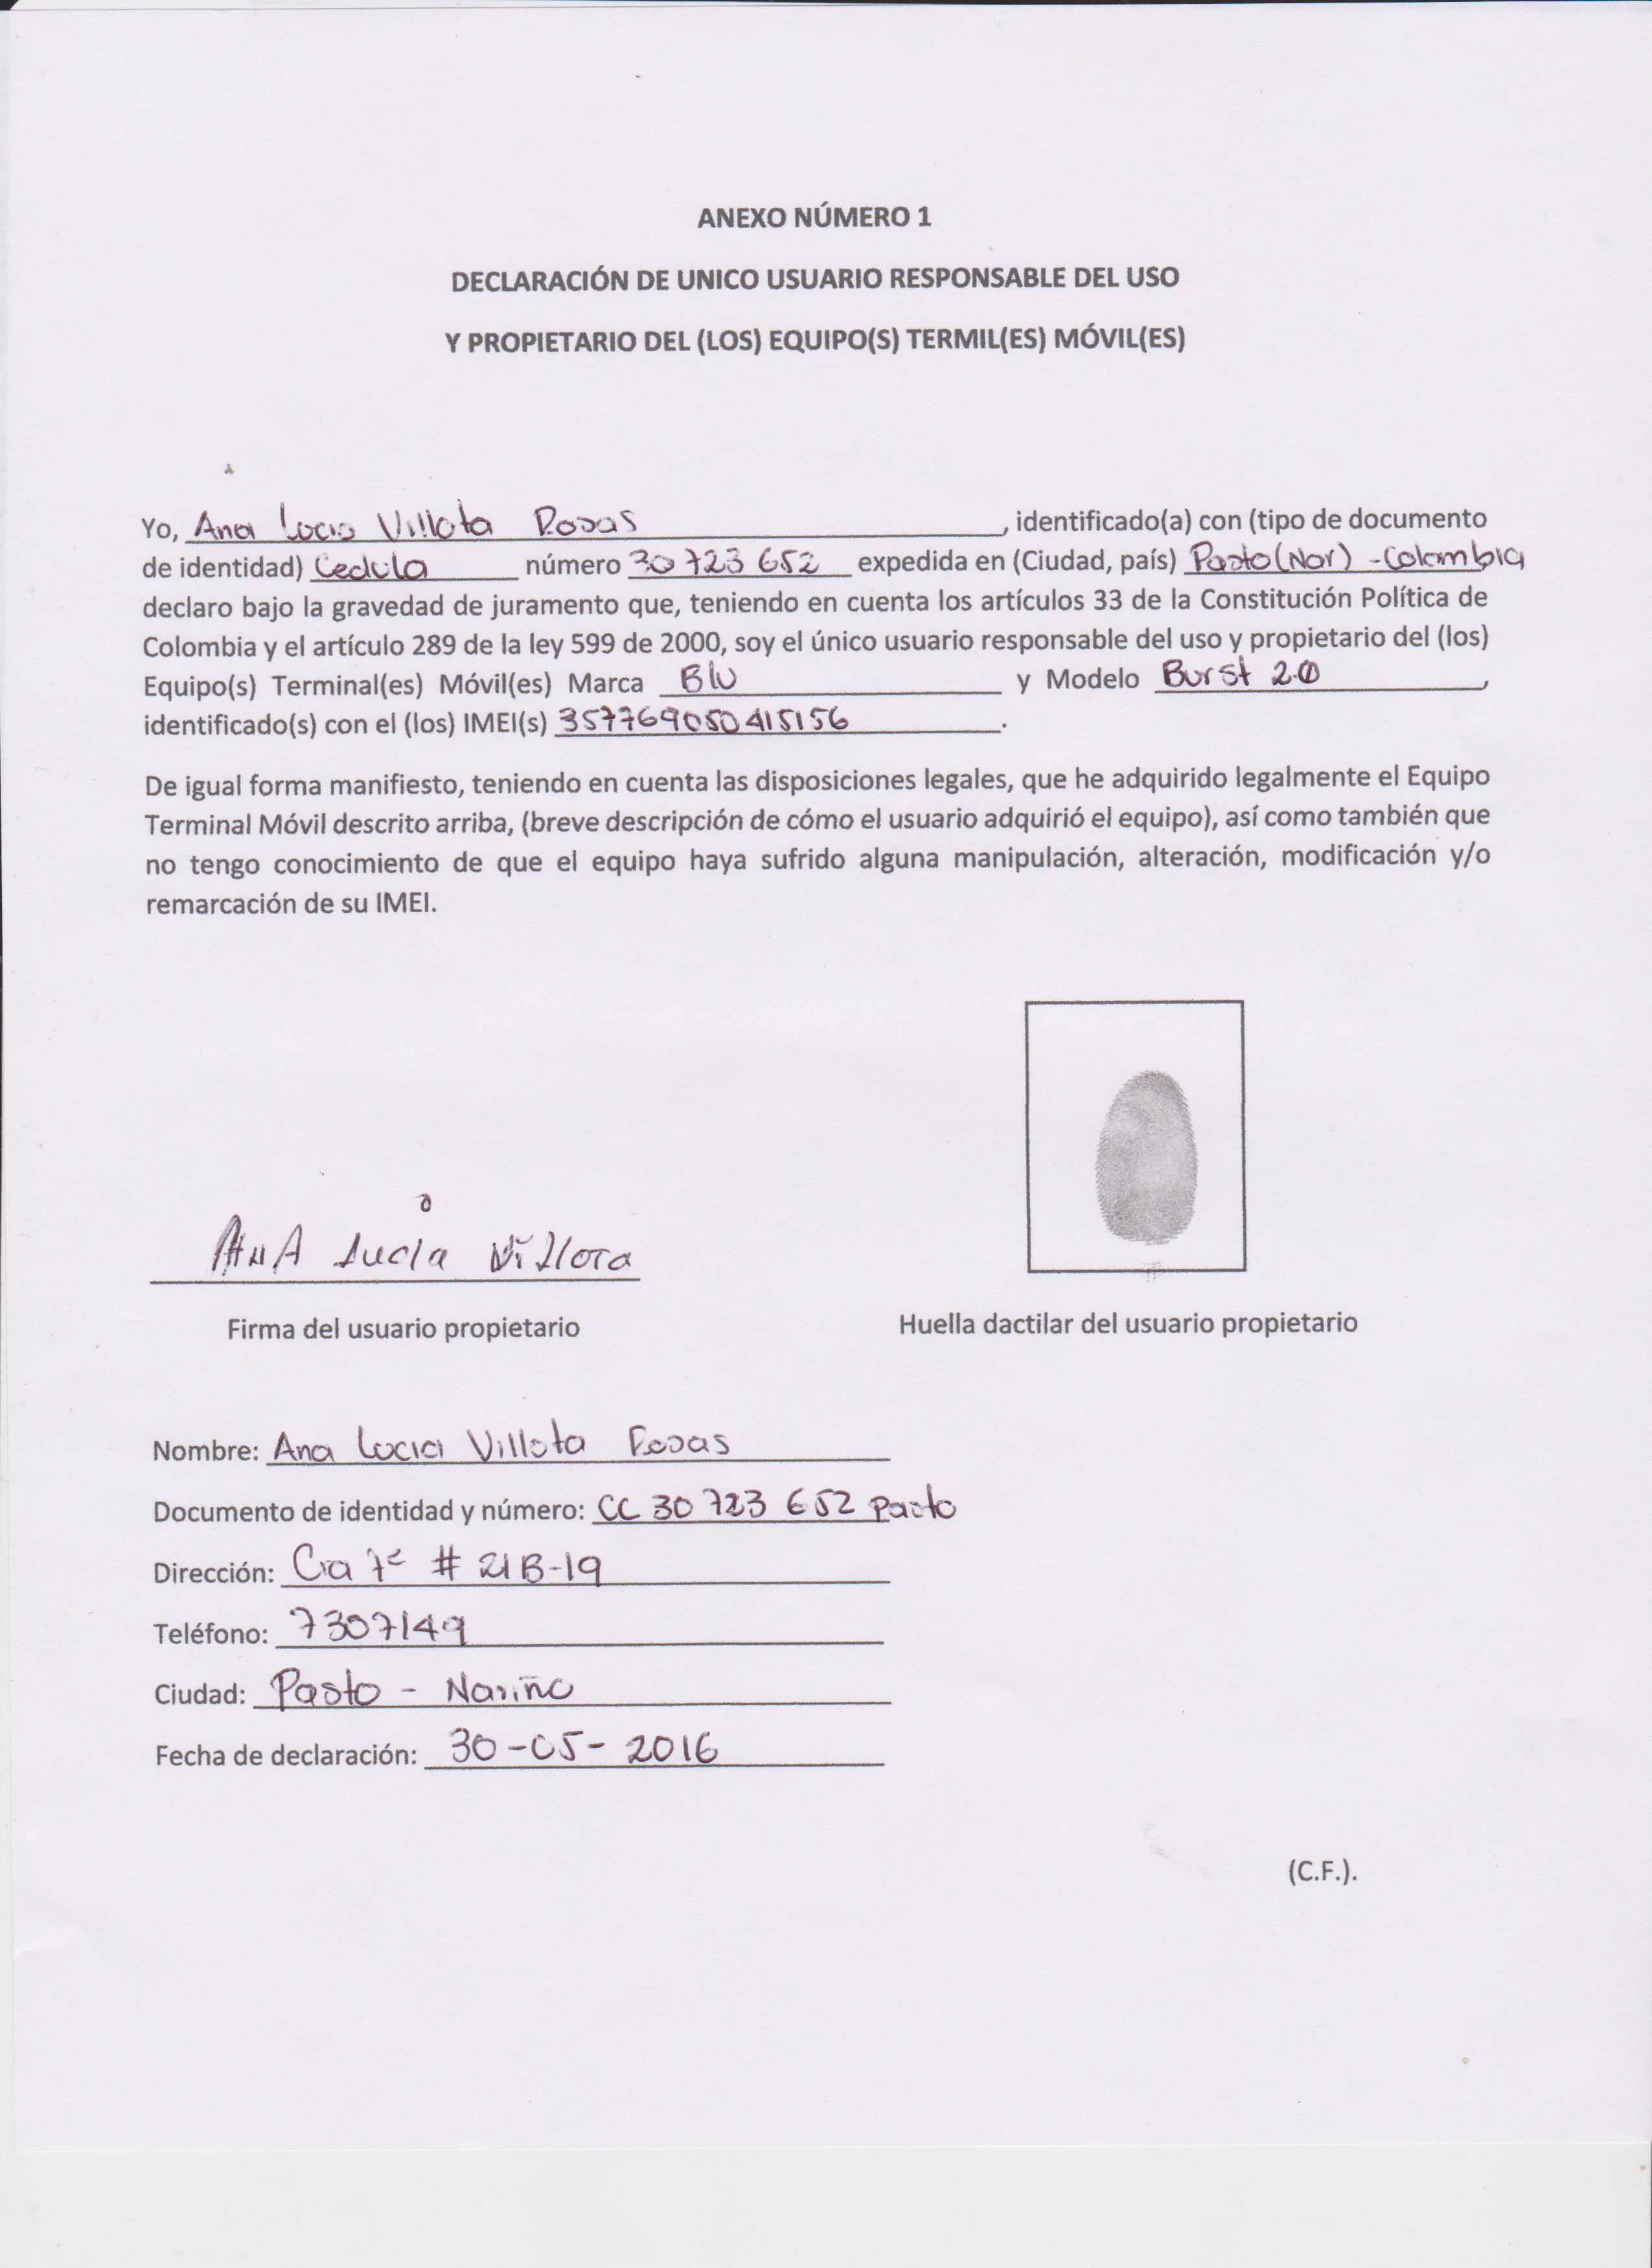 ANEXO NÚMERO 1
DECLARACIÓN DE UNICO USUARIO RESPONSABLE DEL USO
Y PROPIETARIO DEL (LOS) EQUIPO(S) TERMIL(ES) MÓVIL(ES)
Yo, Ana Lucia Villota Rosas, identificado(a) con (tipo de documento
de identidad) Cedula número 30 723 652 expedida en (Ciudad, país) Pasto (Nar) - Colombia
declaro bajo la gravedad de juramento que, teniendo en cuenta los artículos 33 de la Constitución Política de
Colombia y el artículo 289 de la ley 599 de 2000, soy el único usuario responsable del uso y propietario del (los)
Equipo(s) Terminal(es) Móvil(es) Marca Blu y Modelo Burst 2.0,
identificado(s) con el (los) IMEI(s) 357769050415156.
De igual forma manifiesto, teniendo en cuenta las disposiciones legales, que he adquirido legalmente el Equipo
Terminal Móvil descrito arriba, (breve descripción de cómo el usuario adquirió el equipo), así como también que
no tengo conocimiento de que el equipo haya sufrido alguna manipulación, alteración, modificación y/o
remarcación de su IMEI.
AnA Lucia Villota
Firma del usuario propietario
Huella dactilar del usuario propietario
Nombre: Ana Lucia Villota Rosas
Documento de identidad y número: CC 30 723 652 Pasto
Dirección: Cra 7c # 21B-19
Teléfono: 7307149
Ciudad: Pasto - Nariño
Fecha de declaración: 30-05-2016
(C.F.).